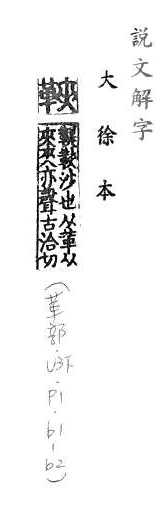 說文解字
大徐本
䩡
鞮䩡沙也从革从
夾夾亦聲古洽切
(革部.P1.b1-b2)